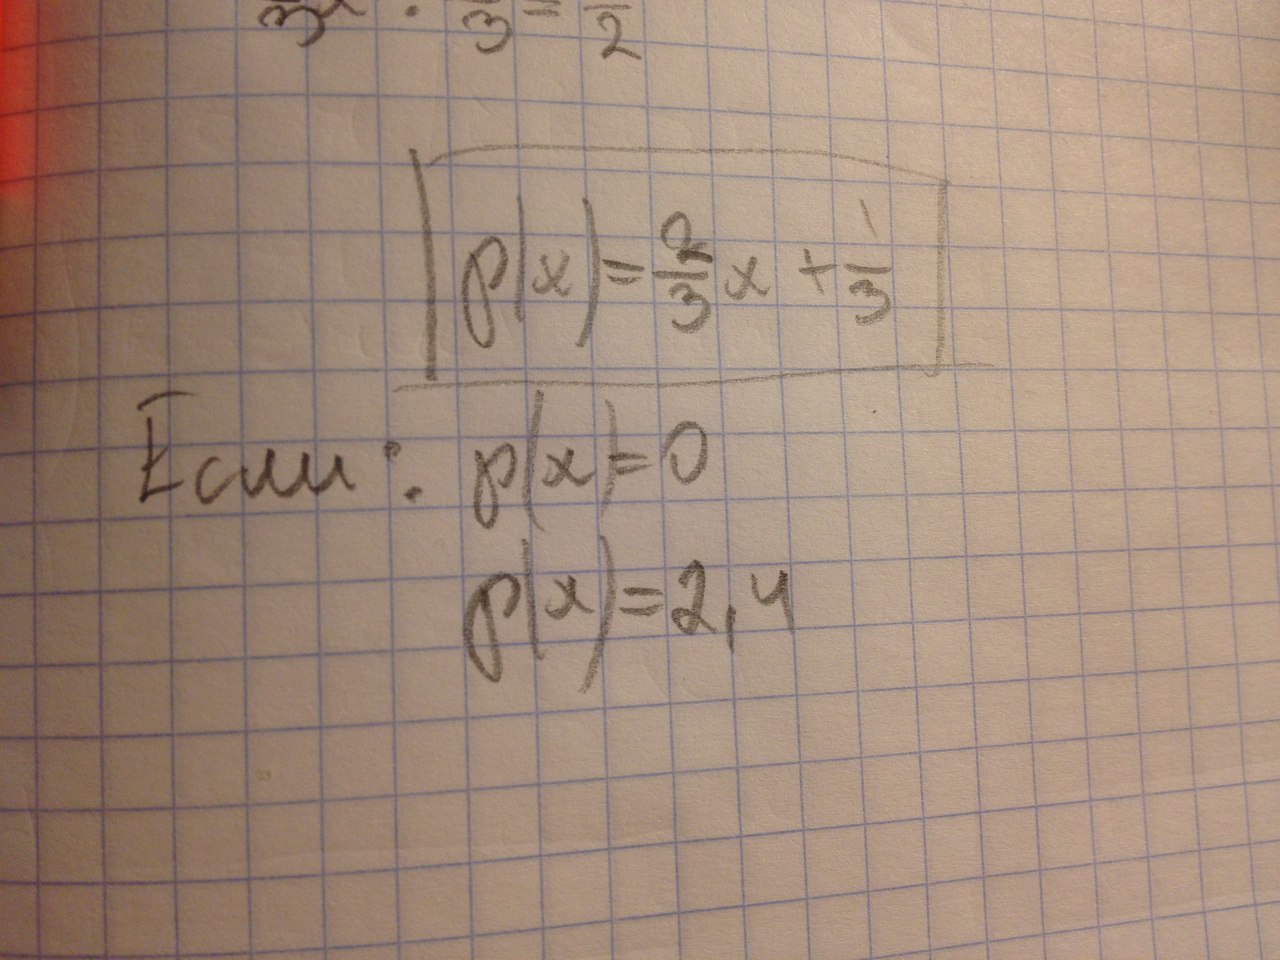 p(x)=2/3x + 1/3
Если: p(x)=0
p(x)=2,4